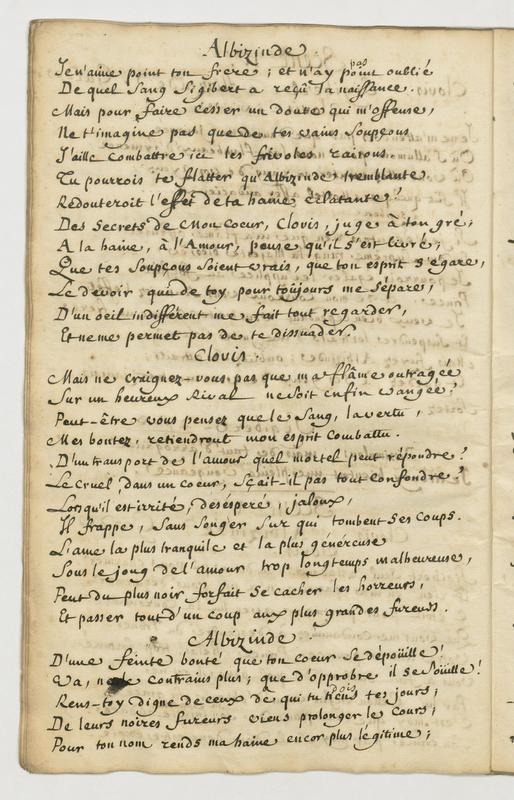 Albizinde.
Je n'aime point ton frére; et n'ay point pas oublié
De quel Sang Sigibert a reçû la naissance.
Mais pour faire cesser un doute qui m'offense,
Ne t'imagine pas que de tes vains soupçons
J'aille combattre ici les frivoles raisons.
Tu pourrois te flatter qu'Albizinde tremblante
Redouteroit l'effet de ta haine éclatante!
Des secrets de mon coeur, Clovis, juge à ton gré;
A la haine, à l'Amour, pense qu'il s'est livré;
Que tes soupçons soient vrais, que ton esprit s'égare,
Le devoir qui de toy pour toujours me sépare,
D'un oeil indifférent me fait tout regarder,
Et ne me permet pas de te dissuader.
Clovis.
Mais ne craignez-vous pas que ma flâme outragée
Sur un heureux Rival ne soit enfin vangée?
Peut-être vous pensez que le Sang, la vertu,
Mes bontez, retiendront mon esprit combattu.
D'un transport de l'amour quel mortel peut répondre?
Le cruel, dans un coeur, sçait-il pas tout confondre?
Lorsqu'il est irrité, desésperé, jaloux,
Il frappe, sans songer sur qui tombent ses coups.
L'ame la plus tranquile et la plus généreuse
Sous le joug de l'amour trop longtemps malheureuse,
Peut du plus noir forfait se cacher les horreurs,
Et passer tout d'un coup aux plus grandes fureurs.
Albizinde.
D'une feinte bonté que ton coeur se dépoüille!
Va, ne le contrains plus; que d'opprobre il se soüille!
Rens-toy digne de ceux de qui tu tiens tes jours;
De leurs noires fureurs viens prolonger le cours;
Pour ton nom rends ma haine encor plus légitime;